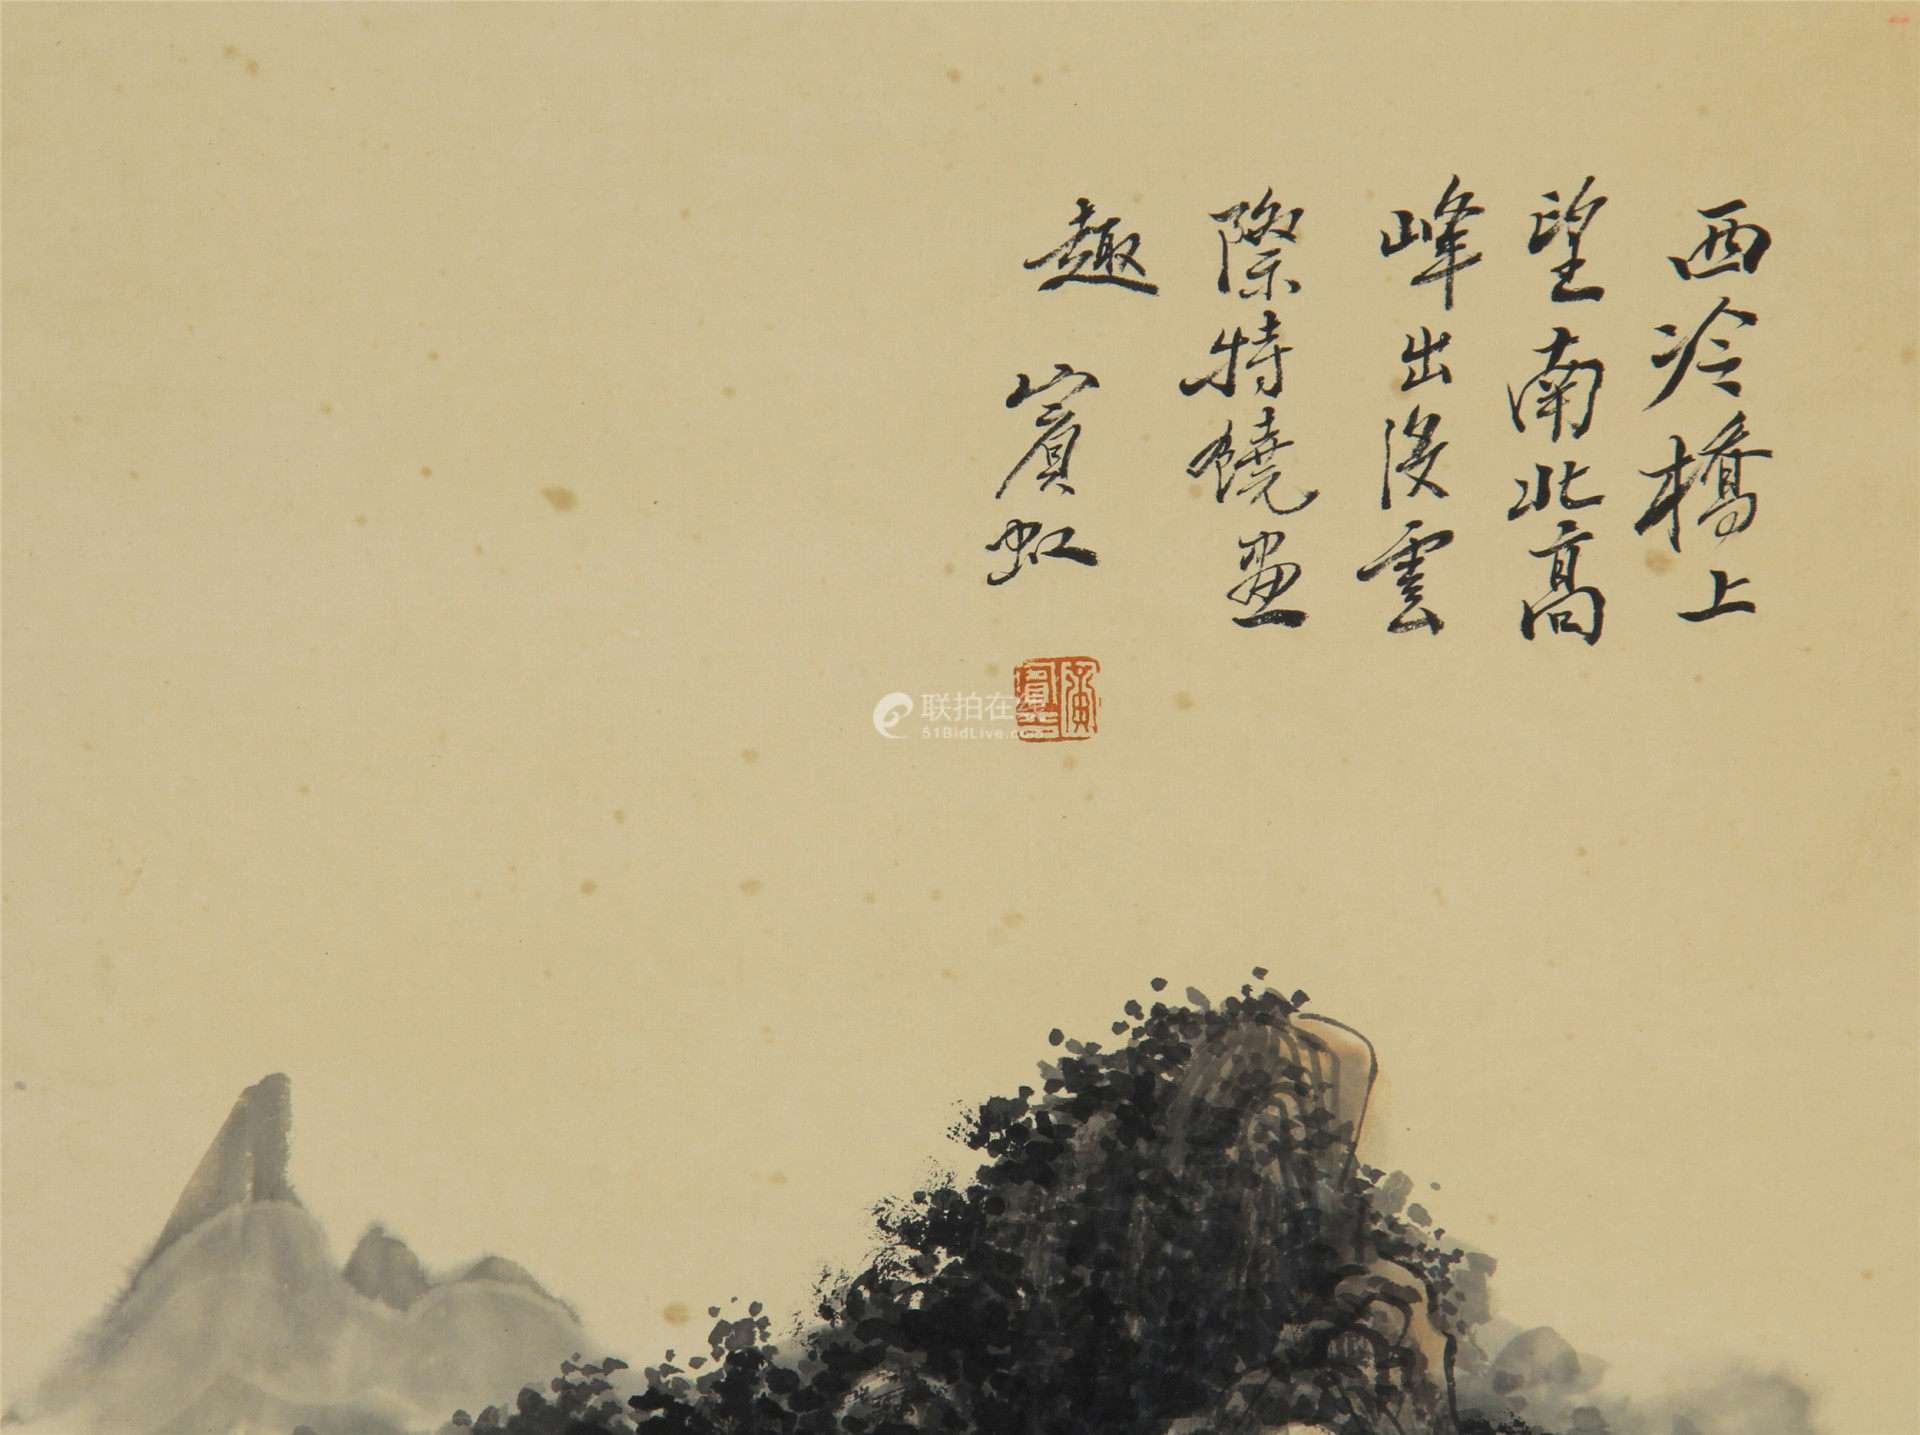 西泠橋上
望南北高
峰出没雲
際特饒畫
趣 賓虹
联拍在线
51BidLive.com